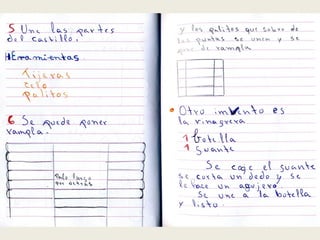 5 Une las partes
del castillo.
Herramientas
Tijeras
celo
palitos
6 Se puede poner
rampla.
Palo largo
por detras
y los palitos que sobre de
las puntas se unen y se
pone de rampla
Otro invento es
la vinagrera
1 botella
1 guante
Se coge el guante
se corta un dedo y se
le hace un agujero.
Se une a la botella
y listo.